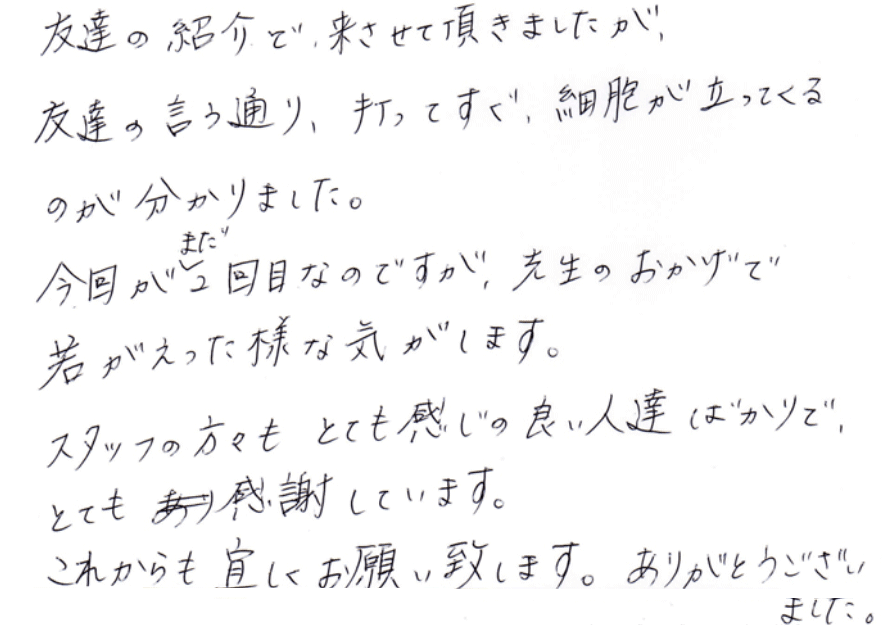 友達の紹介で、来させて頂きましたが、
友達の言う通り、打ってすぐ、細胞が立ってくる
のが分かりました。
まだ
今回が2回目なのですが、先生のおかげで
若がえった様な気がします。
スタッフの方々もとても感じの良い人達ばかりで、
とても感謝しています。
これからも宜しくお願い致します。ありがとうござい
ました。